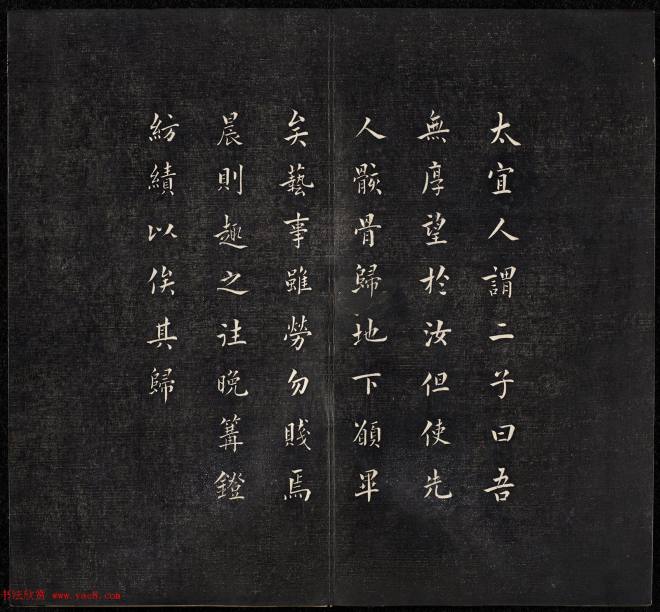 太宜人謂二子曰吾
無厚望於汝但使先
人骸骨歸地下願畢
矣藝事雖勞勿賤焉
晨則趣之往晚篝鐙
紡績以俟其歸
书法欣赏 www.yac8.com